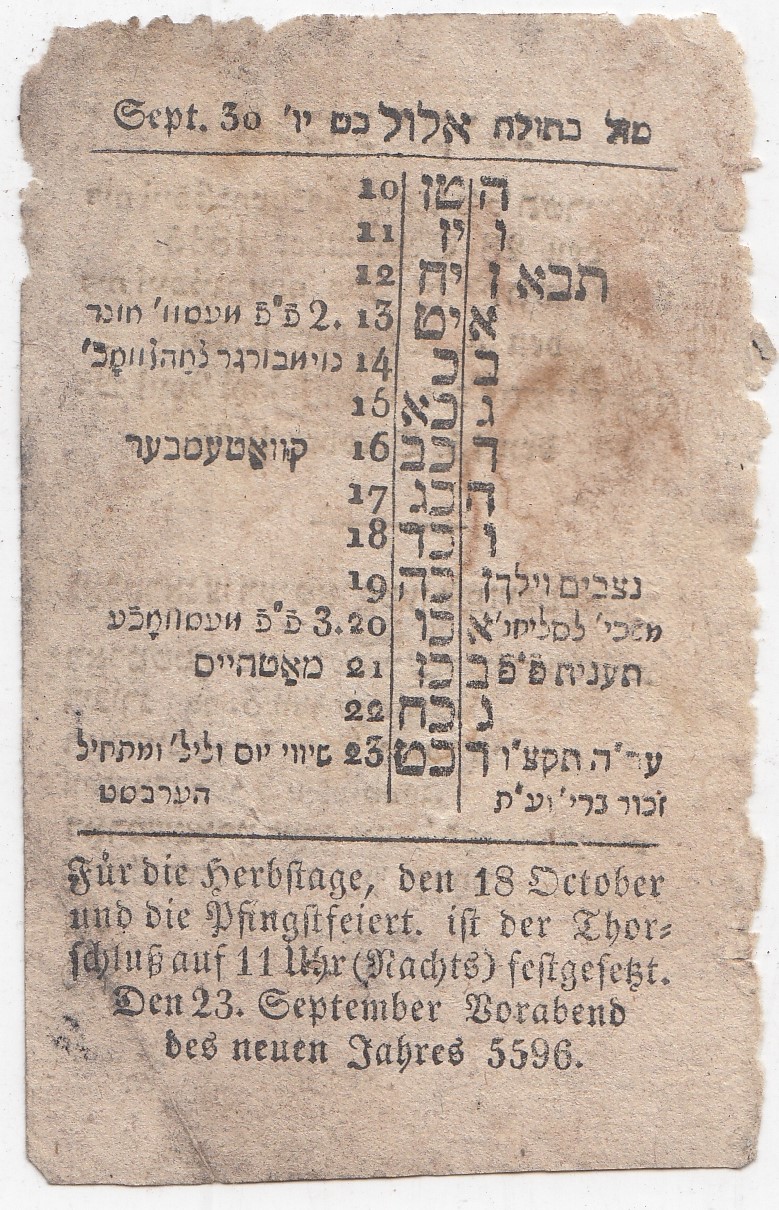 מזל בתולה אלול כט יו' Sept. 30
ה טז 10
ו יז 11
תבא ז יח 12
א יט 13 .2 פ"פ מעסוו' חונר
ב כ 14
ג כא 15
ד כב 16 קוואטעמבער
ה כג 17
ו כד 18
נצבים וילך ז כה 19
משכי' לסליחו' א כו 20 .3 פ"פ
תענית פ"פ ב כז 21 מאטהייס
ג כח 22
ער"ה תקצ"ו ד כט 23 שיווי יום וליל' ומתחיל
זכור ברי' וע"ת הערבסט
Für die Herbstage, den 18 October
und die Pfingstfeiert. ist der Thor-
schluß auf 11 Uhr (Nachts) festgesetzt.
Den 23. September Vorabend
des neuen Jahres 5596.